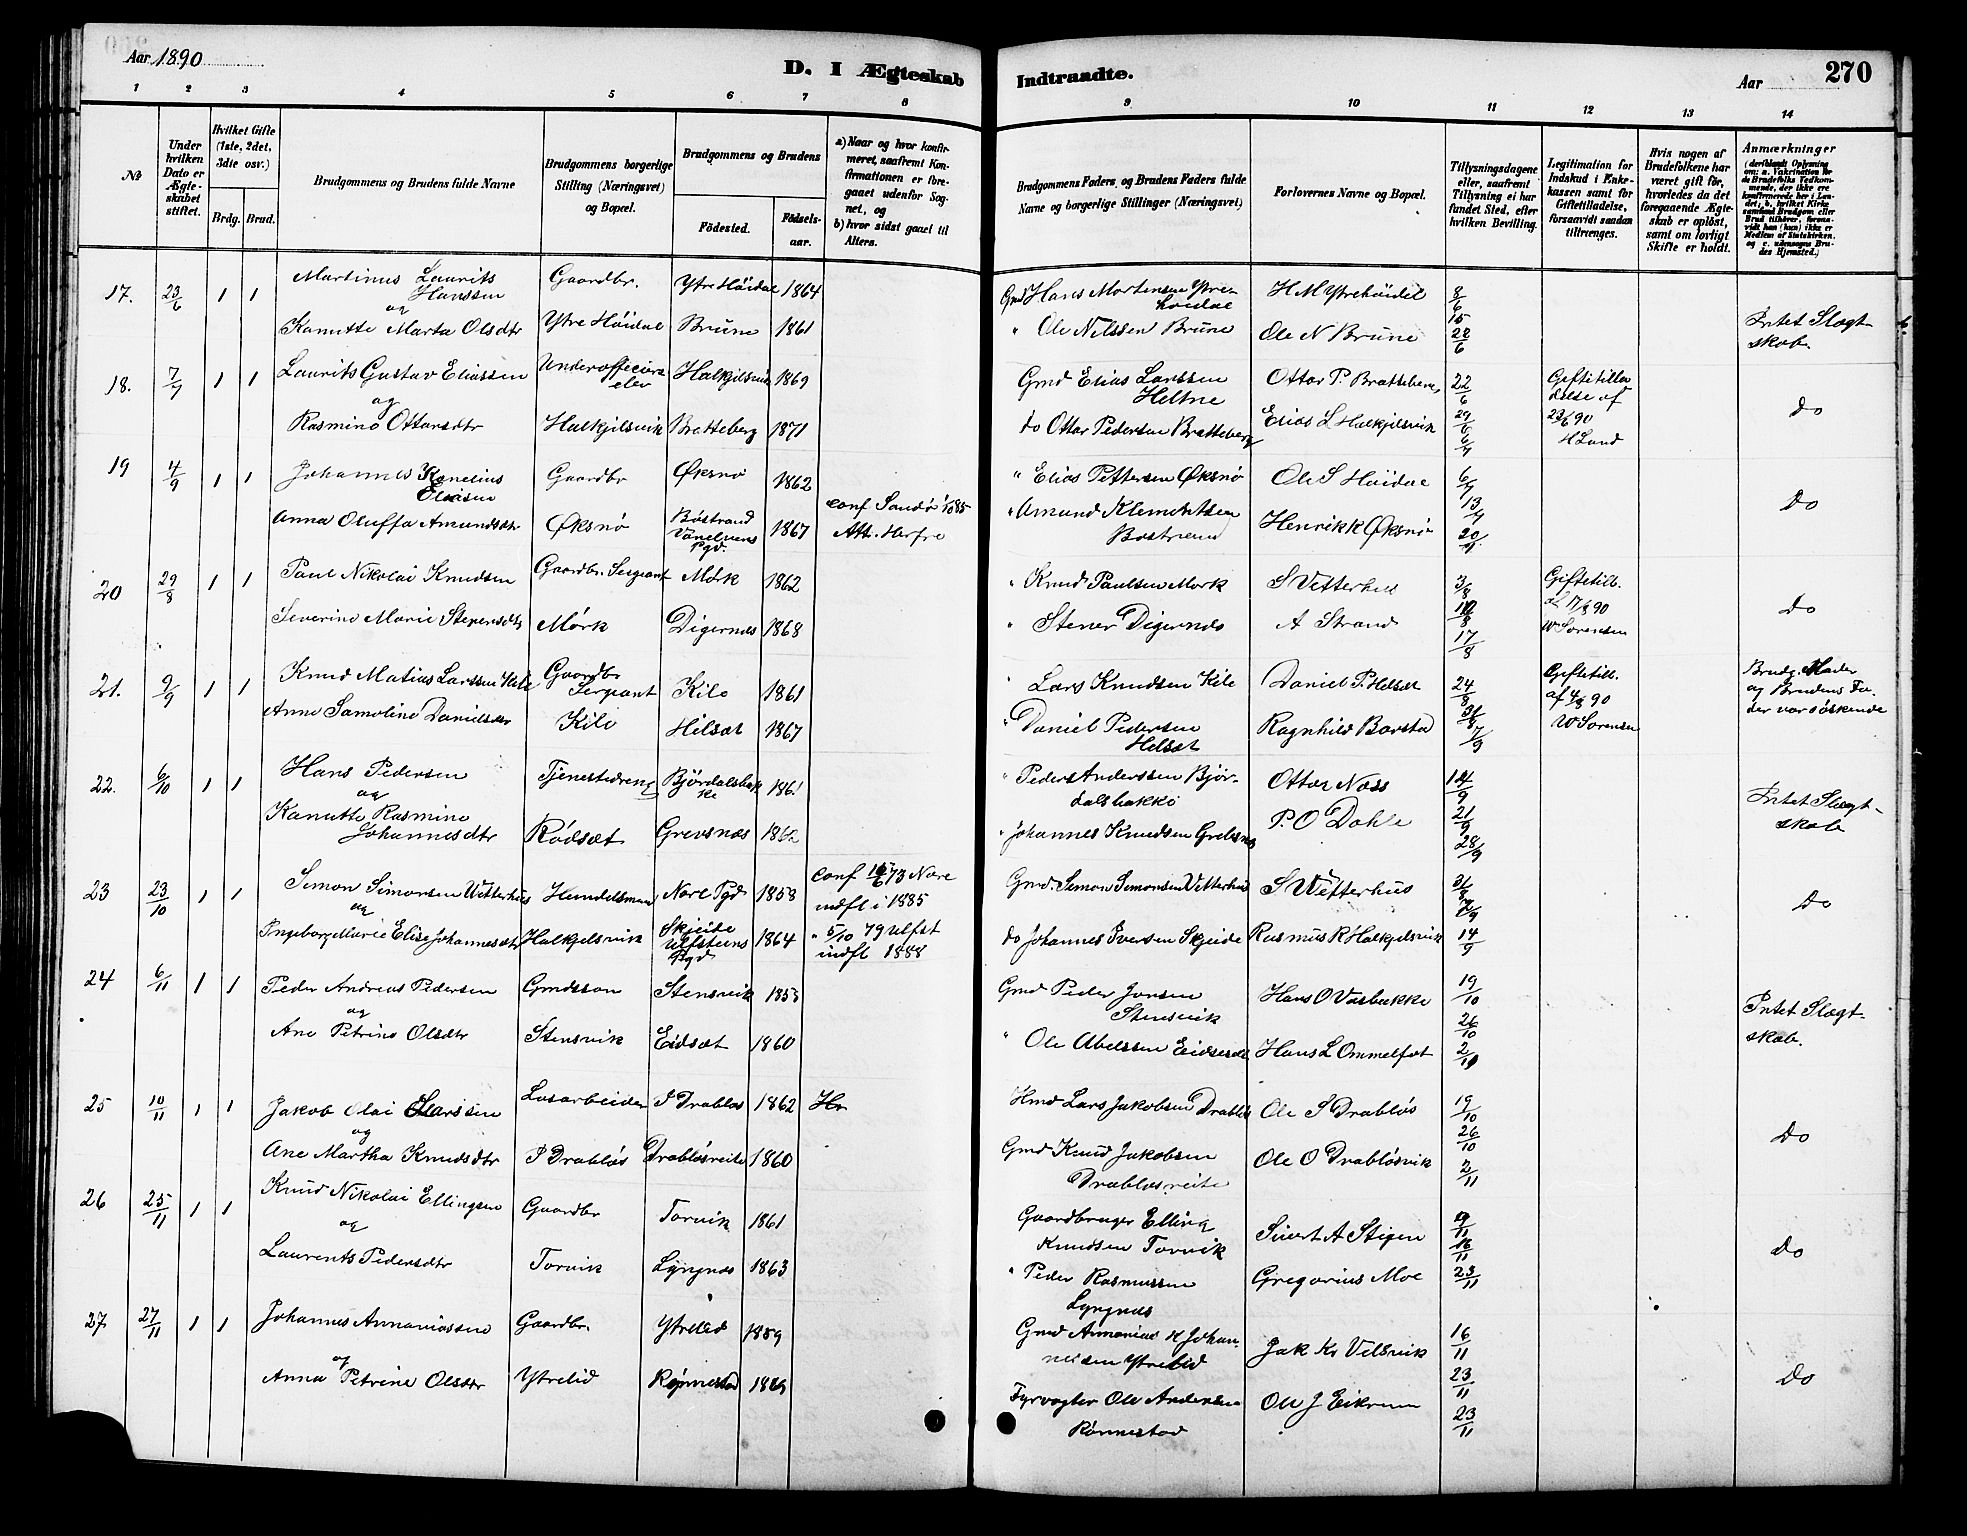 Aar 1890
D. I Ægteskab
Indtraadte.
Aar
270
1 2 3 4 5 6 7 8 9 10 11 12 13 14
No
Under hvilken Dato er Ægteskabet stiftet.
Hvilket Gifte (1ste, 2det, 3die osv.)
Brdg. Brud.
Brudgommens og Brudens fulde Navne
Brudgommens borgerlige Stilling (Næringsvei) og Bopæl.
Brudgommens og Brudens
Fødested.
Fødselsaar.
a) Naar og hvor konfirmeret, saafremt Konfirmationen er foregaaet udenfor Sognet, og
b) hvor sidst gaaet til Alters.
Brudgommens Faders og Brudens Faders fulde Navne og borgerlige Stillinger (Næringsvei)
Forlovernes Navne og Bopæl.
Tillysningsdagene eller, saafremt Tillysning ei har fundet Sted, efter hvilken Bevilling.
Legitimation for Indskud i Enkekassen samt for Giftetilladelse, forsaavidt saadan tiltrænges.
Hvis nogen af Brudefolkene har været gift før, hvorledes da det foregaaende Ægteskab er opløst, samt om lovligt Skifte er holdt.
Anmærkninger
17. 23/6 1 1 Martinus Laurits Hanssen Gaardbr. Ytre Höidal 1864 Gmd Hans Mortensen Ytrehöidal H M Ytrehöidal 8/6
og
Kanutte Marta Olsdtr Ytre Höidal Brune 1861 " Ole Nilssen Brune Ole N Brune 15 22/6 Intet Slægtskab.
18. 7/7 1 1 Laurits Gustav Eliassen Underofficerselev Halkjelsvik 1869 Gmd Elias Larssen Heltne Ottar P. Bratteberg 22/6 Giftetilladelse af 23/6 90 H Lund
og
Rasmine Ottarsdtr Halkjelsvik Bratteberg 1871 do Ottar Pedersen Bratteberg Elias L Halkjelsvik 29/6 6/7 do
19 4/9 1 1 Johannes Kornelius Eliasen Gaardbr Øksnø 1862 " Elias Pettersen Øksnø Ole S Höidal 6/7
Anna Oluffa Amundsdtr Øksnø Böstrand Vanelvens Pgd. 1867 conf Sandö 1/10 85 Att. Herfre " Amund Klemetsen Bostrand Henrik K Øksnö 13/7 20/7 Do
20 29/8 1 1 Paul Nikolai Knudsen Gaardbr. Sergeant Mørk 1862 " Knud Paulsen Mork S Vetterhus 3/8 Giftetill. af 17/8 90 W Sorensen
Severine Marie Stenersdtr Mørk Digernæs 1868 " Stener Digernæs A Strand 10/8 17/8 Do
21. 9/9 1 1 Knud Matias Larssen Kile Gaardbr Sergeant Kile 1861 " Lars Knudsen Kile Daniel P. Helsæt 24/8 Giftetill. af 4/8 90 W Sorensen
Anne Samoline Danielsdtr Kile Helsæt 1867 " Daniel Pedersen Helsæt Ragnhild Barstad 31/8 7/9 Brudg. Moder og Brudens Fader var söskende
22. 6/10 1 1 Hans Pedersen Tjenestedreng Bjørdalsbakke 1861 " Peder Anderssen Bjørdalsbakke Ottar Næss 14/9
og
Kanutte Rasmine Johannesdtr Rödsæt Grevsnæs 1862 " Johannes Knudsen Grevsnæs P. O Dahle 21/9 28/9 Intet Slægtskab
23 23/10 1 1 Simon Simonsen Wetterhus Handelsmand Nore Pgd 1858 conf 73 Nore indfl i 1885 Gmd. Simon Simonsen Vetterhus S Wetterhus 31/8 7/9
og
Ingeborg Marie Elise Johannesdt Halkjelsvik Skjeide Ulfsteens Pgd 1864 " 5/10 79 Ulfst indfl 1888 do Johannes Iversen Skjeide Rasmus R Halkjelsvik 14/9 Do
24 6/11 1 1 Peder Andreas Pedersen Gmdssøn Stensvik 1853 Gmd Peder Jonsen Stensvik Hans O Vasbakke 19/10
og
Ane Petrine Olsdtr Stensvik Eidsæt 1860 " Ole Abelssen Eidset Hans L Ommelfot 26/10 2/11 Intet Slægtskab.
25 10/11 1 1 Jakob Olai Larssen Løsarbeider I Drablos 1862 Hr Hmd Lars Jakobsen Drablos Ole S Drabløs 19/10
og
Ane Martha Knudsdtr I Drabløs Drabløsreite 1860 Gmd Knud Jakobsen Drablosreite Ole O Drabløsvik 26/10 2/11 Do
26 25/11 1 1 Knud Nikolai Ellingsen Gaardbr Torvik 1861 Gaardbruger Elling Knudsen Torvik Sivert A Stigen 9/11 16/11
og
Laurents Pedersdtr Torvik Lyngnæs 1863 " Peder Rasmussen Lyngnæs Gregorius Moe 23/11 Do
27. 27/11 1 1 Johannes Annaniassen Gaardbr. Ytrelid 1859 Gmd Annanias H Johannessen Ytrelid Jak Kr Velsvik 16/11
og
Anna Petrine Olsdtr Ytrelid Rønnestad Fyrvogter Ole Andersen Rønnestad Ole J Eikrem 23/11 23/11 Do